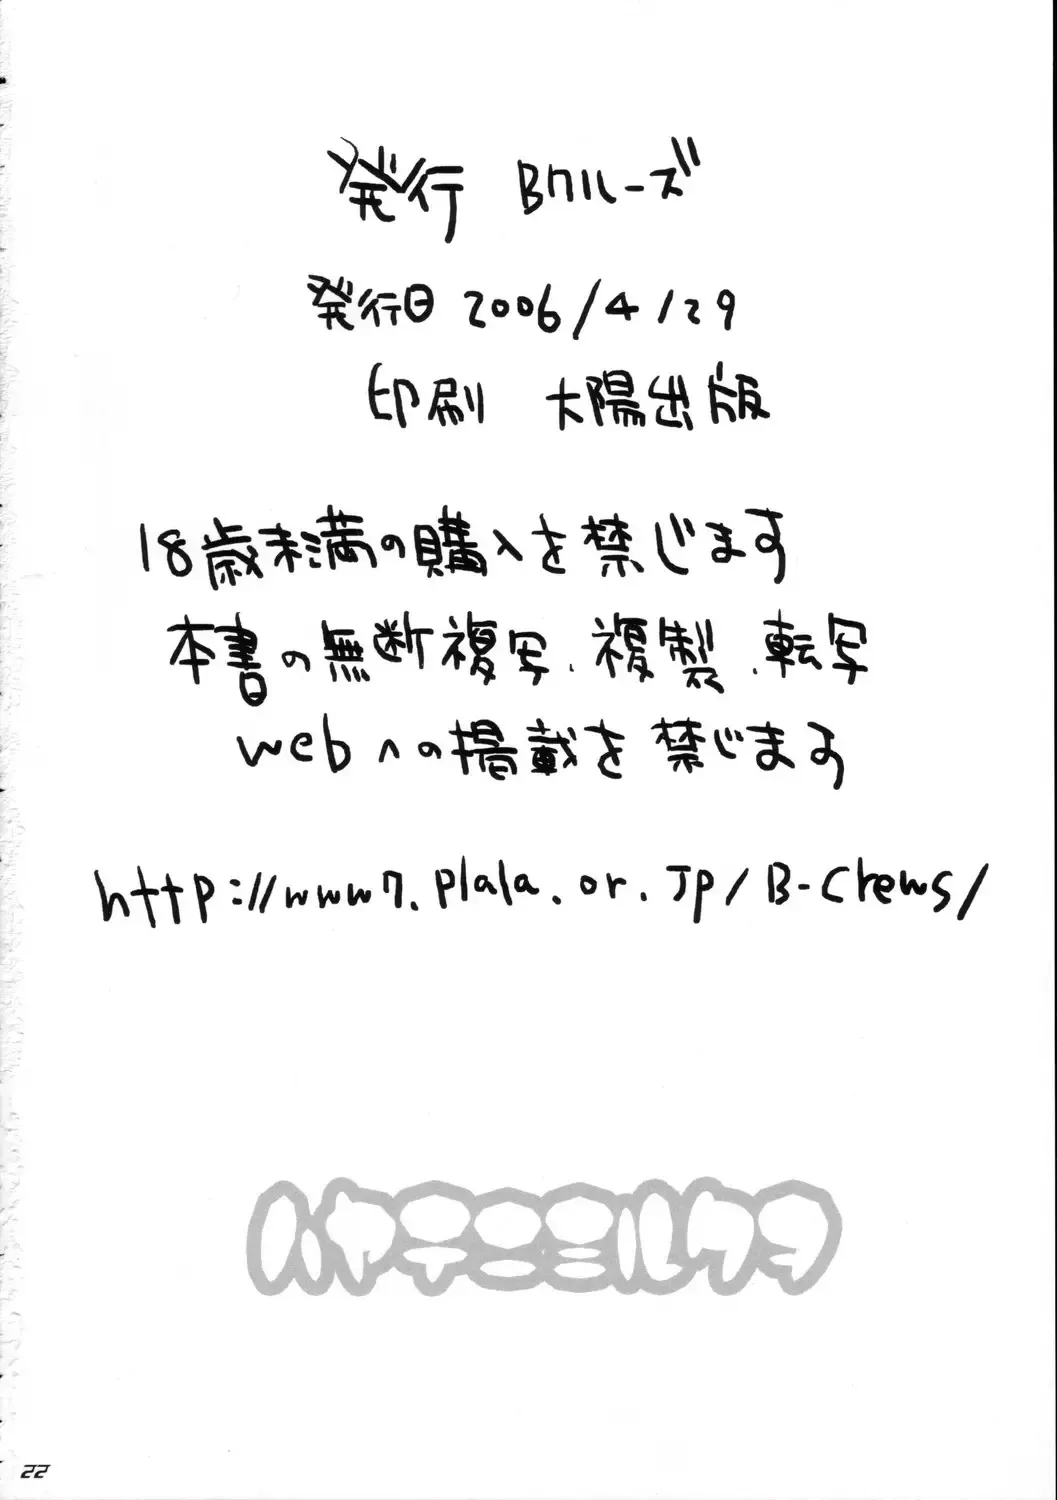 発行 Bクルーズ
発行日 2006/4/29
印刷 大陽出版
18歳未満の購入を禁じます
本書の無断複写、複製、転写
webへの掲載を禁じます
http://www7.plala.or.jp/B-Crews/
22